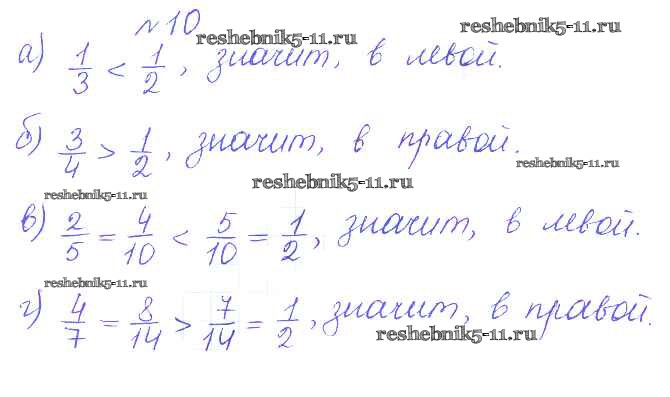 №10
reshebnik5-11.ru reshebnik5-11.ru
а) 1/3 < 1/2, значит, в левой.
б) 3/4 > 1/2, значит, в правой.
reshebnik5-11.ru
reshebnik5-11.ru reshebnik5-11.ru
в) 2/5 = 4/10 < 5/10 = 1/2, значит, в левой.
reshebnik5-11.ru
г) 4/7 = 8/14 > 7/14 = 1/2, значит, в правой.
reshebnik5-11.ru